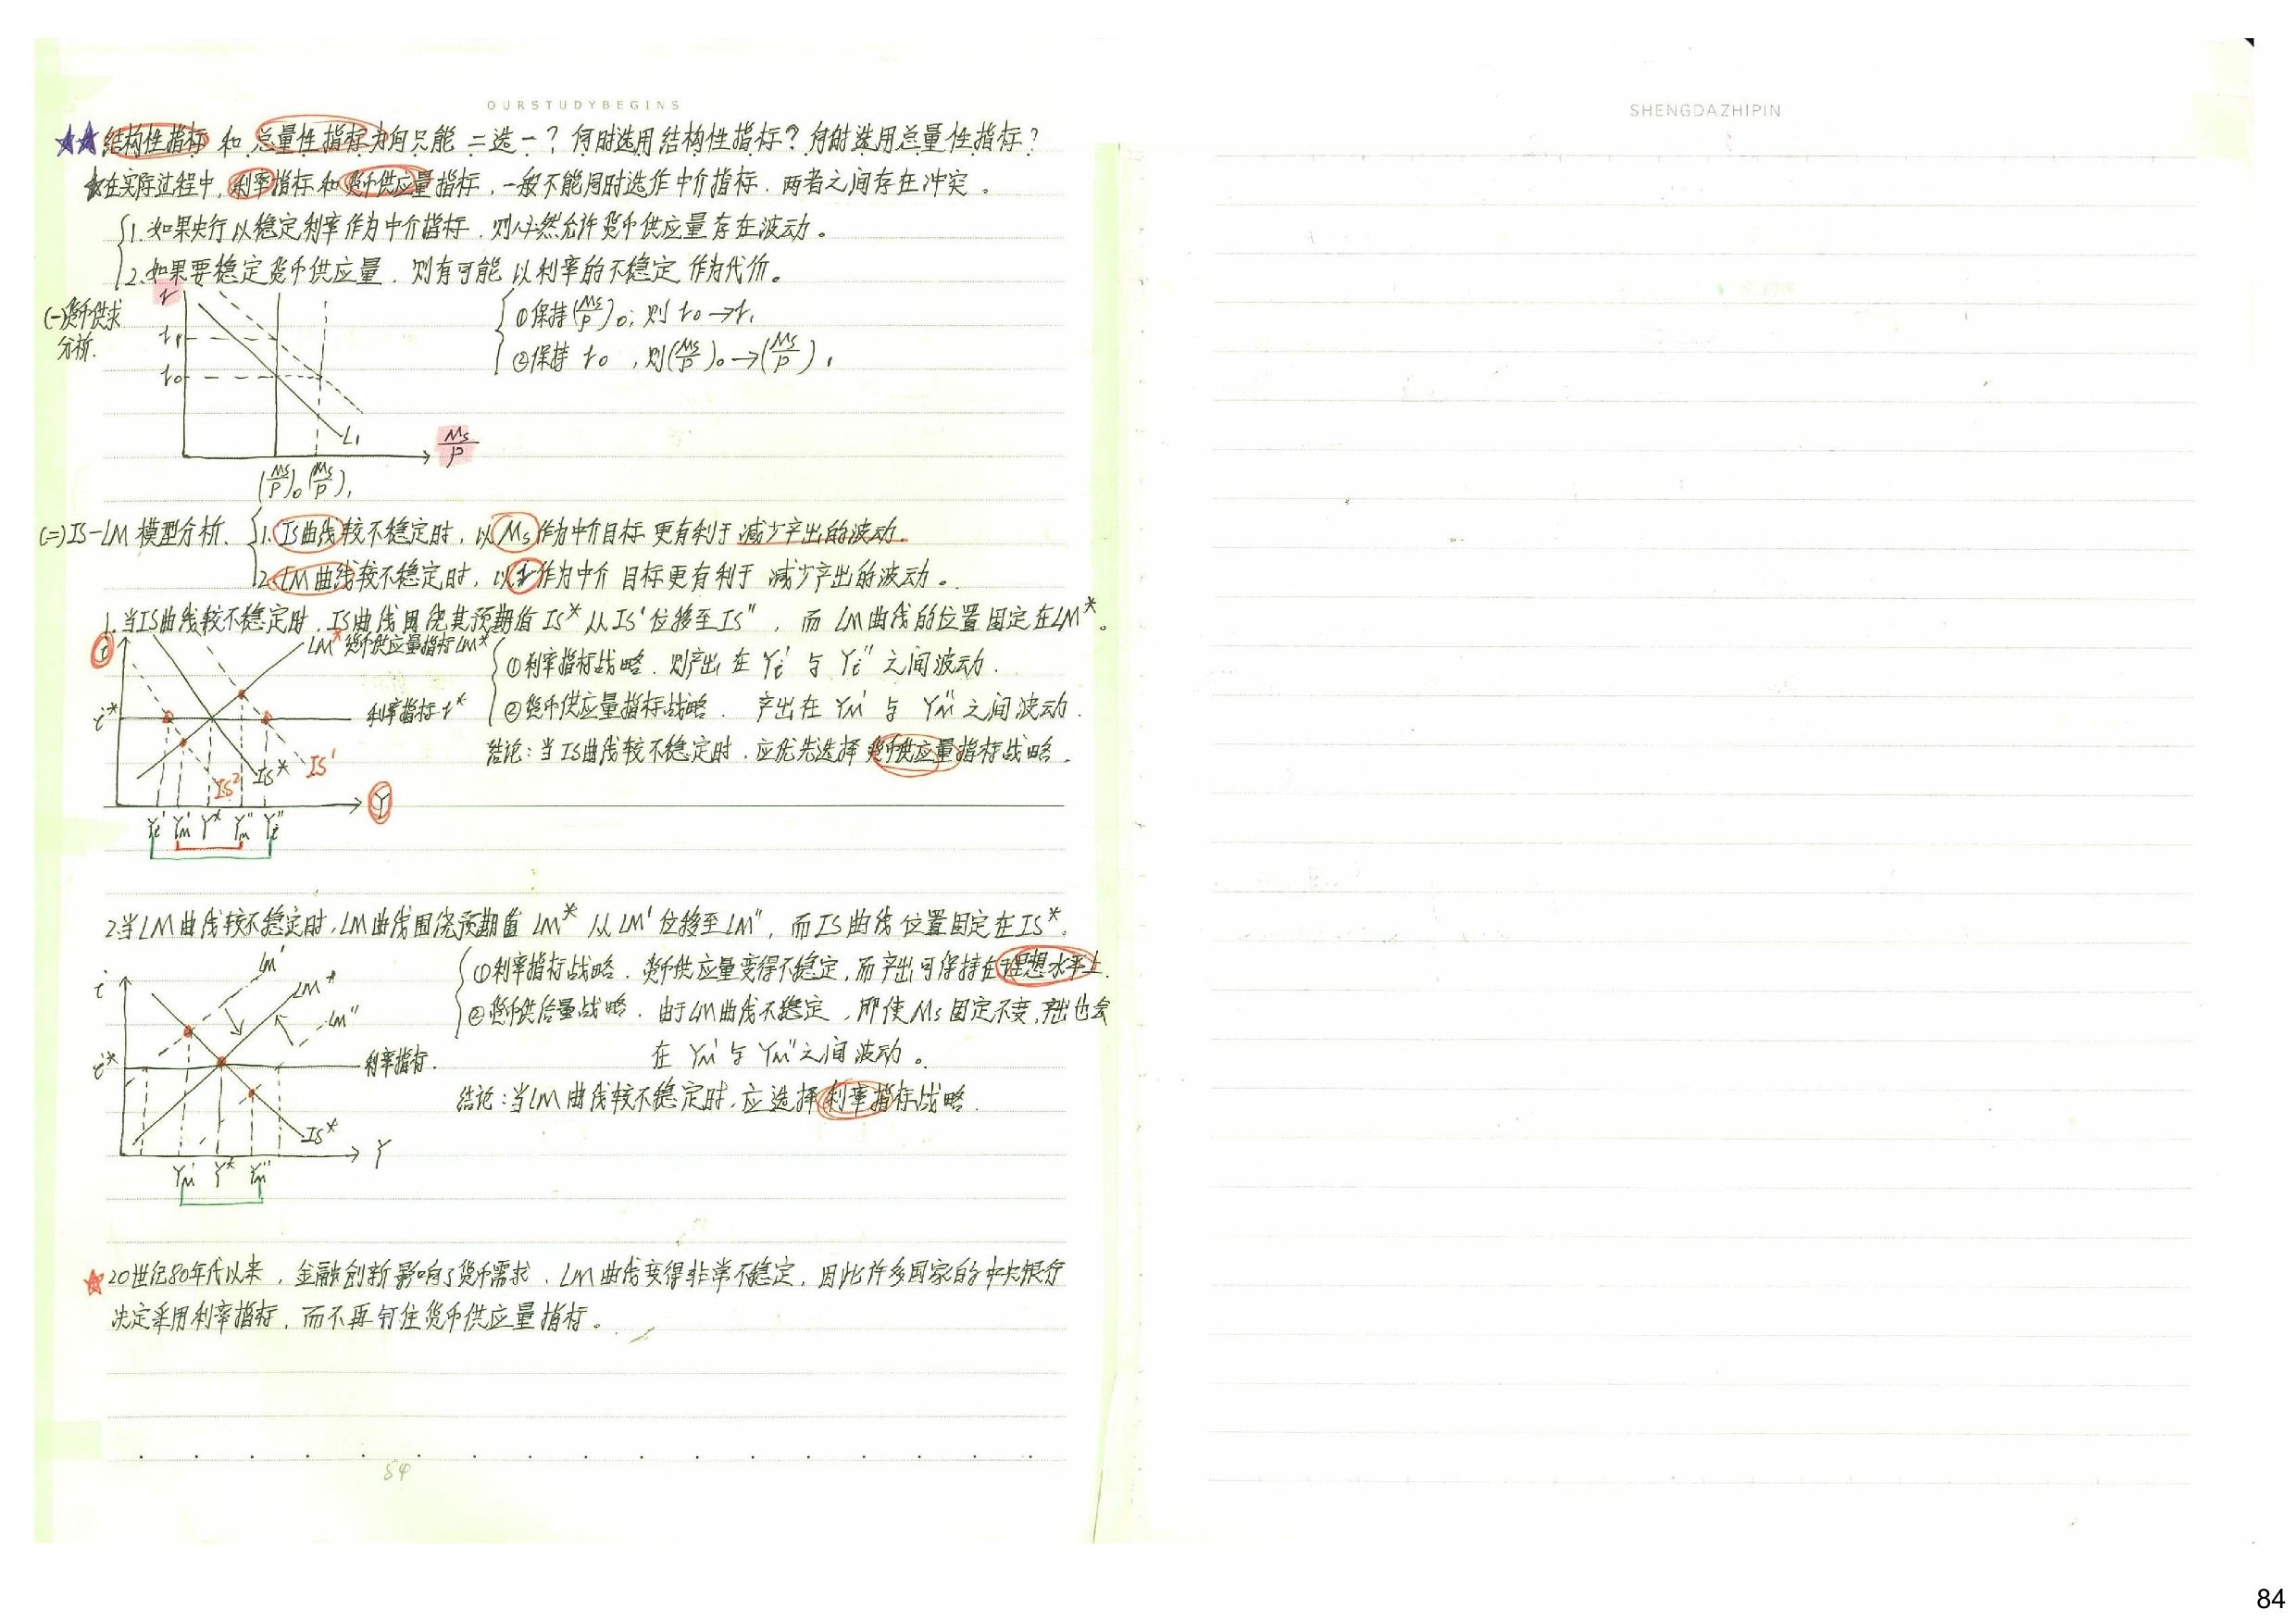 OURSTUDYBEGINS
SHENGDAZHIPIN
★★结构性指标 和 总量性指标为何只能 二选一？何时选用结构性指标？何时选用总量性指标？
在实际过程中，利率指标和货币供应量指标，一般不能同时选作中介指标，两者之间存在冲突。
1.如果央行以稳定利率作为中介指标，则必然允许货币供应量存在波动。
2.如果要稳定货币供应量，则有可能 以利率的不稳定 作为代价。
(一)货币供求
分析.
r
r₁
r₀
L₁
Ms/P
(Ms/P)₀ (Ms/P)₁
①保持(Ms/P)₀；则 r₀→r₁
②保持 r₀，则(Ms/P)₀→(Ms/P)₁
(二)IS-LM 模型分析.
1. IS曲线较不稳定时，以Ms作为中介目标 更有利于 减少产出的波动.
2. LM曲线较不稳定时，以r作为中介 目标更有利于 减少产出的波动。
1.当IS曲线较不稳定时，IS曲线围绕其预期值 IS* 从IS'位移至IS"，而 LM曲线的位置固定在LM*。
i
LM* 货币供应量指标LM*
i*
利率指标 r*
IS² IS* IS'
Y
Yi' YM' Y* YM" Yi"
①利率指标战略．则产出 在 Yi' 与 Yi" 之间波动.
②货币供应量指标战略． 产出在 YM' 与 YM" 之间波动.
结论：当IS曲线较不稳定时，应优先选择 货币供应量指标战略.
2.当LM曲线较不稳定时，LM曲线围绕预期值 LM* 从 LM'位移至LM"，而IS曲线 位置固定在IS*。
i
LM'
LM*
LM"
i*
利率指标.
IS*
Y
YM' Y* YM"
①利率指标战略．货币供应量变得不稳定，而产出可保持在理想水平上.
②货币供给量战略． 由于LM曲线不稳定，即使Ms固定不变，产出也会
在 YM' 与 YM"之间波动。
结论：当LM曲线较不稳定时，应选择利率指标战略.
★20世纪80年代以来，金融创新影响了货币需求，LM曲线变得非常不稳定，因此许多国家的中央银行
决定采用利率指标，而不再钉住货币供应量指标。
84
84